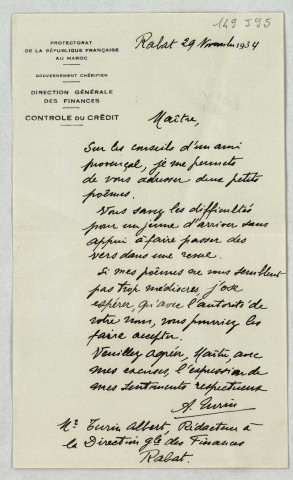 149 J 95
PROTECTORAT
DE LA RÉPUBLIQUE FRANÇAISE
AU MAROC
GOUVERNEMENT CHÉRIFIEN
DIRECTION GÉNÉRALE
DES FINANCES
CONTROLE DU CRÉDIT
Rabat 29 Novembre 1934
Maître,
Sur les conseils d'un ami
provençal, je me permets
de vous adresser deux petits
poèmes.
Vous savez les difficultés
pour un jeune d'arriver sans
appui à faire passer des
vers dans une revue.
Si mes poèmes ne vous semblent
pas trop médiocres, j'ose
espérer, qu'avec l'autorité de
votre nom, vous pourriez les
faire accepter.
Veuillez agréer, Maître, avec
mes excuses, l'expression de
mes sentiments respectueux
A. Turin
Mr Turin Albert, Rédacteur à
la Direction gle des Finances
Rabat.